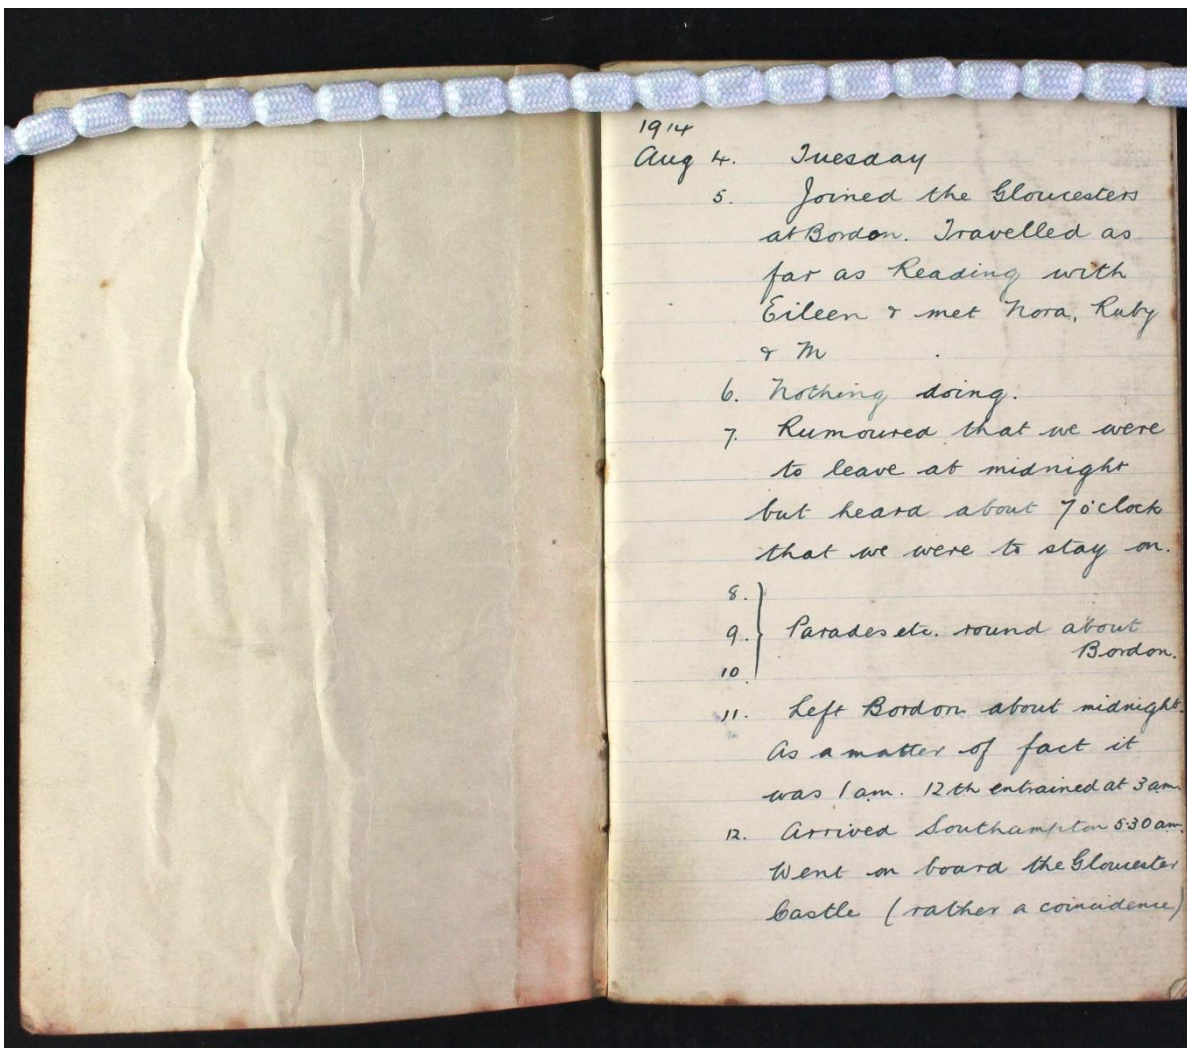 1914
Aug 4. Tuesday
5. Joined the Gloucesters
at Bordon. Travelled as
far as Reading with
Eileen & met Nora, Ruby
& M
6. Nothing doing.
7. Rumoured that we were
to leave at midnight
but heard about 7 o'clock
that we were to stay on.
8.
9. Parades etc. round about
Bordon.
10
11. Left Bordon about midnight.
As a matter of fact it
was 1 am. 12th entrained at 3 am.
12. Arrived Southampton 5.30 am.
Went on board the Gloucester
Castle (rather a coincidence)